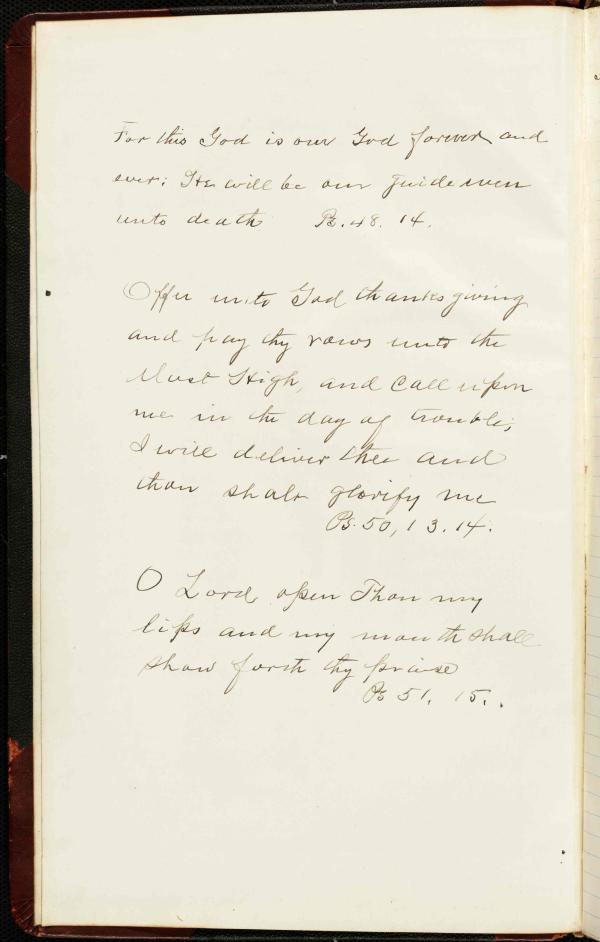 For this God is our God forever and
ever; He will be our guide even
unto death Ps. 48. 14.
Offer unto God thanksgiving
and pay thy vows unto the
Most High, and Call upon
me in the day of trouble,
I will deliver thee and
thou shalt glorify me
Ps. 50, 13. 14.
O Lord, open Thou my
lips and my mouth shall
show forth thy praise
Ps 51. 15.